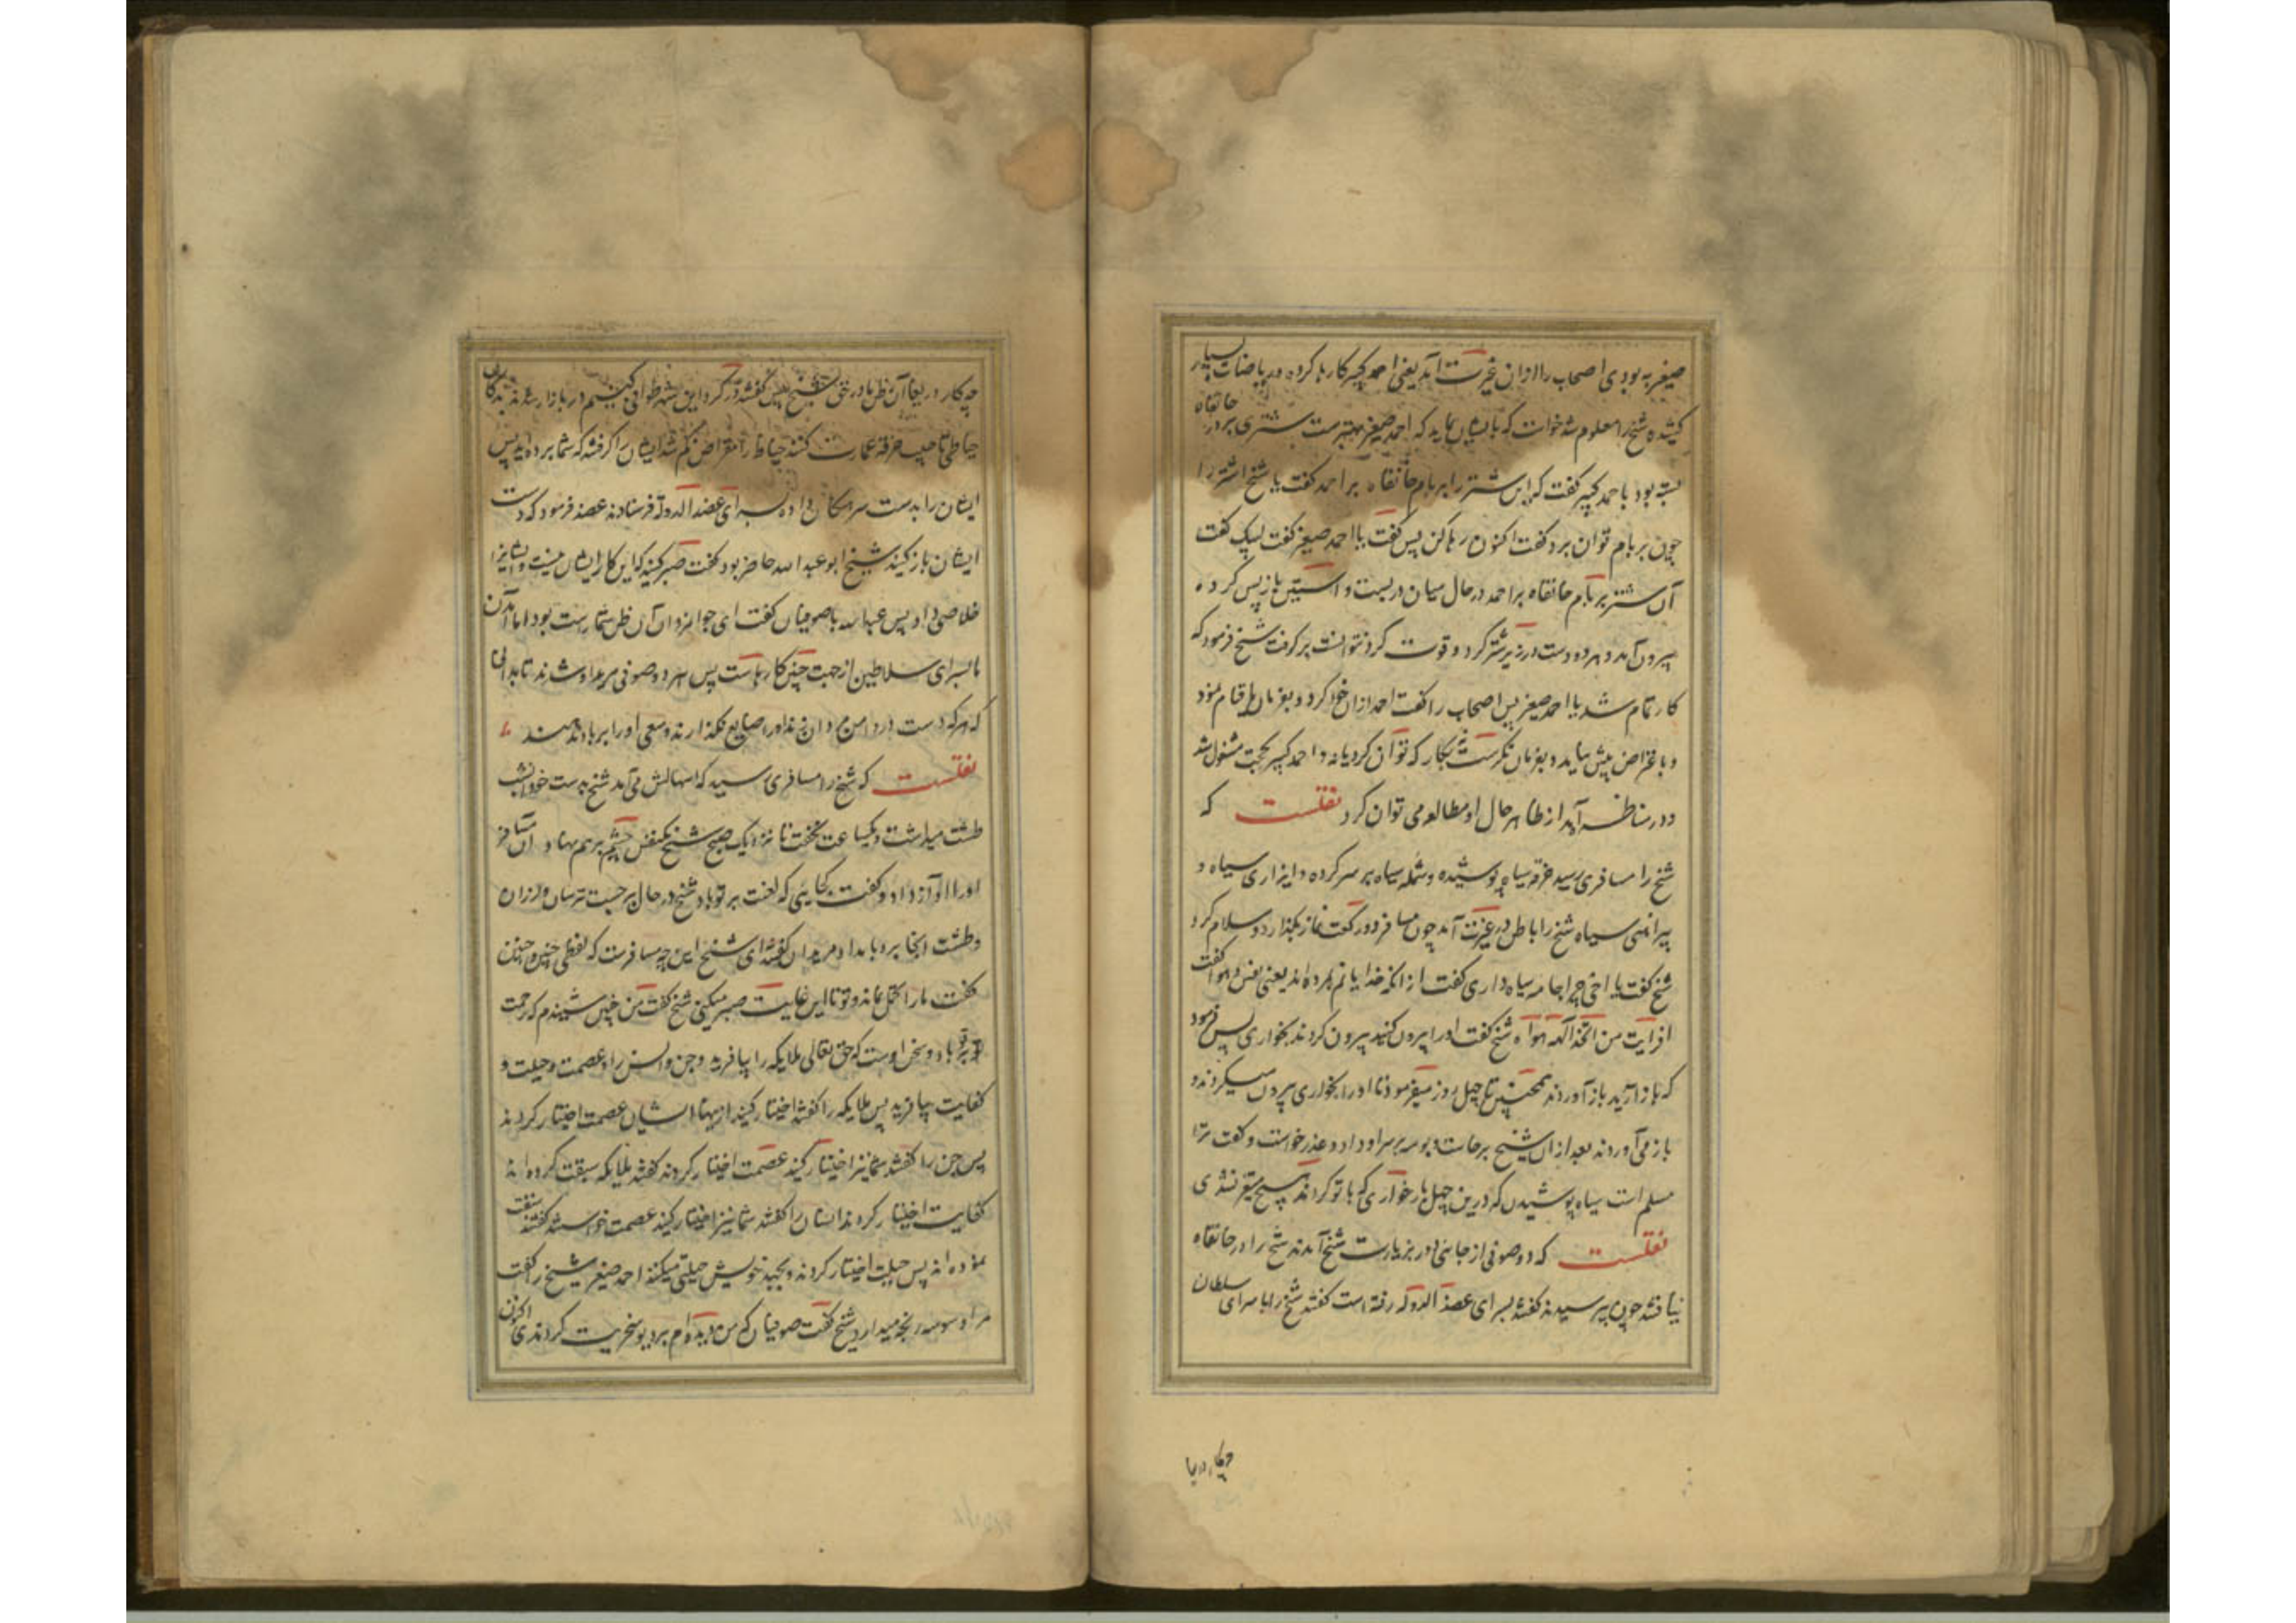 صغیر به بودی اصحاب را ازان غیرت آمد یعنی احمد کبیر کارها کرده و ریاضات بسیار
کشیده شیخ را معلوم شد خواست که با ایشان نماید که احمد صغیر بهترست شتری بر در خانقاه
بسته بود با احمد کبیر گفت که این شتر را بر بام خانقاه بر احمد گفت یا شیخ اشتر را
چون بر بام توان برد گفت اکنون رها کن پس گفت یا احمد صغیر گفت لبیک گفت
آن شتر بر بام خانقاه بر احمد در حال میان در بست و آستین باز پس کرده
بیرون آمد و هر دو دست در زیر شتر کرد و قوت کرد نتوانست برگرفت شیخ فرمود که
کار تمام شد یا احمد صغیر پس اصحاب را گفت احمد ازان خود کرد و بفرمان ما قیام نمود
و باعتراض پیش نیامد و بفرمان نگریست نه بکار که توان کرد یا نه و احمد کبیر بحجت مشغول شد
و در مناظره آمد از ظاهر حال او مطالعه می توان کرد نقلست که
شیخ را مسافری رسید خرقه سیاه پوشیده و شمله سیاه بر سر کرده و ایزاری سیاه و
پیراهنی سیاه شیخ را باطن در غیرت آمد چون مسافر دو رکعت نماز بگذارد و سلام کرد
شیخ گفت یا اخی چرا جامه سیاه داری گفت از آنکه خدایانم بمرده اند یعنی نفس و هوا گفت
افرایت من اتخذ الهه هواه شیخ گفت او را بیرون کنید بیرون کردند بخواری پس فرمود
که باز آرید باز آوردند همچنین تا چهل روز میفرمود تا او را بخواری بیرون میکردند و
باز می آوردند بعد ازان شیخ برخاست و بوسه بر سر او داد و عذر خواست و گفت ترا
مسلم است سیاه پوشیدن که درین چهل بار خواری که با تو کردند هیچ متغیر نشدی
نقلست که دو صوفی از جائی دور بزیارت شیخ آمدند شیخ را در خانقاه
نیافتند چون پرسیدند گفتند بسرای عضد الدوله رفته است گفتند شیخ را با سرای سلطان
چه کار دریغا آن ظن ما در حق شیخ پس گفتند در گرد این شهر طوافی کنیم در بازار شدند بدکان
خیاطی تا جیب خرقه عمارت کنند خیاط را مقراض گم شد ایشان را گرفتند که شما برده اید پس
ایشان را بدست سرهنگان داده بسرای عضد الدوله فرستادند عضد فرمود که دست
ایشان باز کنید شیخ ابو عبد الله حاضر بود گفت صبر کنید که این کار ایشان نیست و ایشانرا
خلاصی داد پس عبد الله با صوفیان گفت ای جوانمردان آن ظن شما راست بود اما آمدن
ما بسرای سلاطین از جهت چنین کارهاست پس هر دو صوفی مرید او شدند تا بدانی
که هر که دست در دامن مردان زند او را ضایع نگذارند و سعی او را بر باد ندهند
نقلست که شیخ را مسافری رسید که اسهالش می آمد شیخ بدست خود آنشب
طشت میداشت و یکساعت نخفت تا نزدیک صبح شیخ یکنفس چشم برهم نهاد و آن مسافر
او را آواز داد و گفت کجایی که لعنت بر تو باد شیخ در حال برجست ترسان و لرزان
و طشت آنجا برد بامداد مریدان گفتند ای شیخ این چه مسافرست که لفظی چنین و چنین
گفت ما را تحمل نماند و تو تا این غایت صبر میکنی شیخ گفت من چنین شنیدم که رحمت
بر تو باد و سخن اوست که حق تعالی ملایکه را بیافرید و جن و انس را و عصمت و حیلت و
کفایت بیافرید پس ملایکه را گفتند اختیار کنید از اینها ایشان عصمت اختیار کردند
پس جن را گفتند شما نیز اختیار کنید عصمت اختیار کردند گفتند ملایکه سبقت کرده اند
کفایت اختیار کردند انسان را گفتند شما نیز اختیار کنید عصمت خواستند گفتند سبقت
نموده اند پس حیلت اختیار کردند و بجهد خویش حیلتی میکنند احمد صغیر شیخ را گفت
مرا وسوسه رنجه میدارد شیخ گفت صوفیان که من دیده ام بر دیو سخریت کردندی اکنون
چه کار دریغا